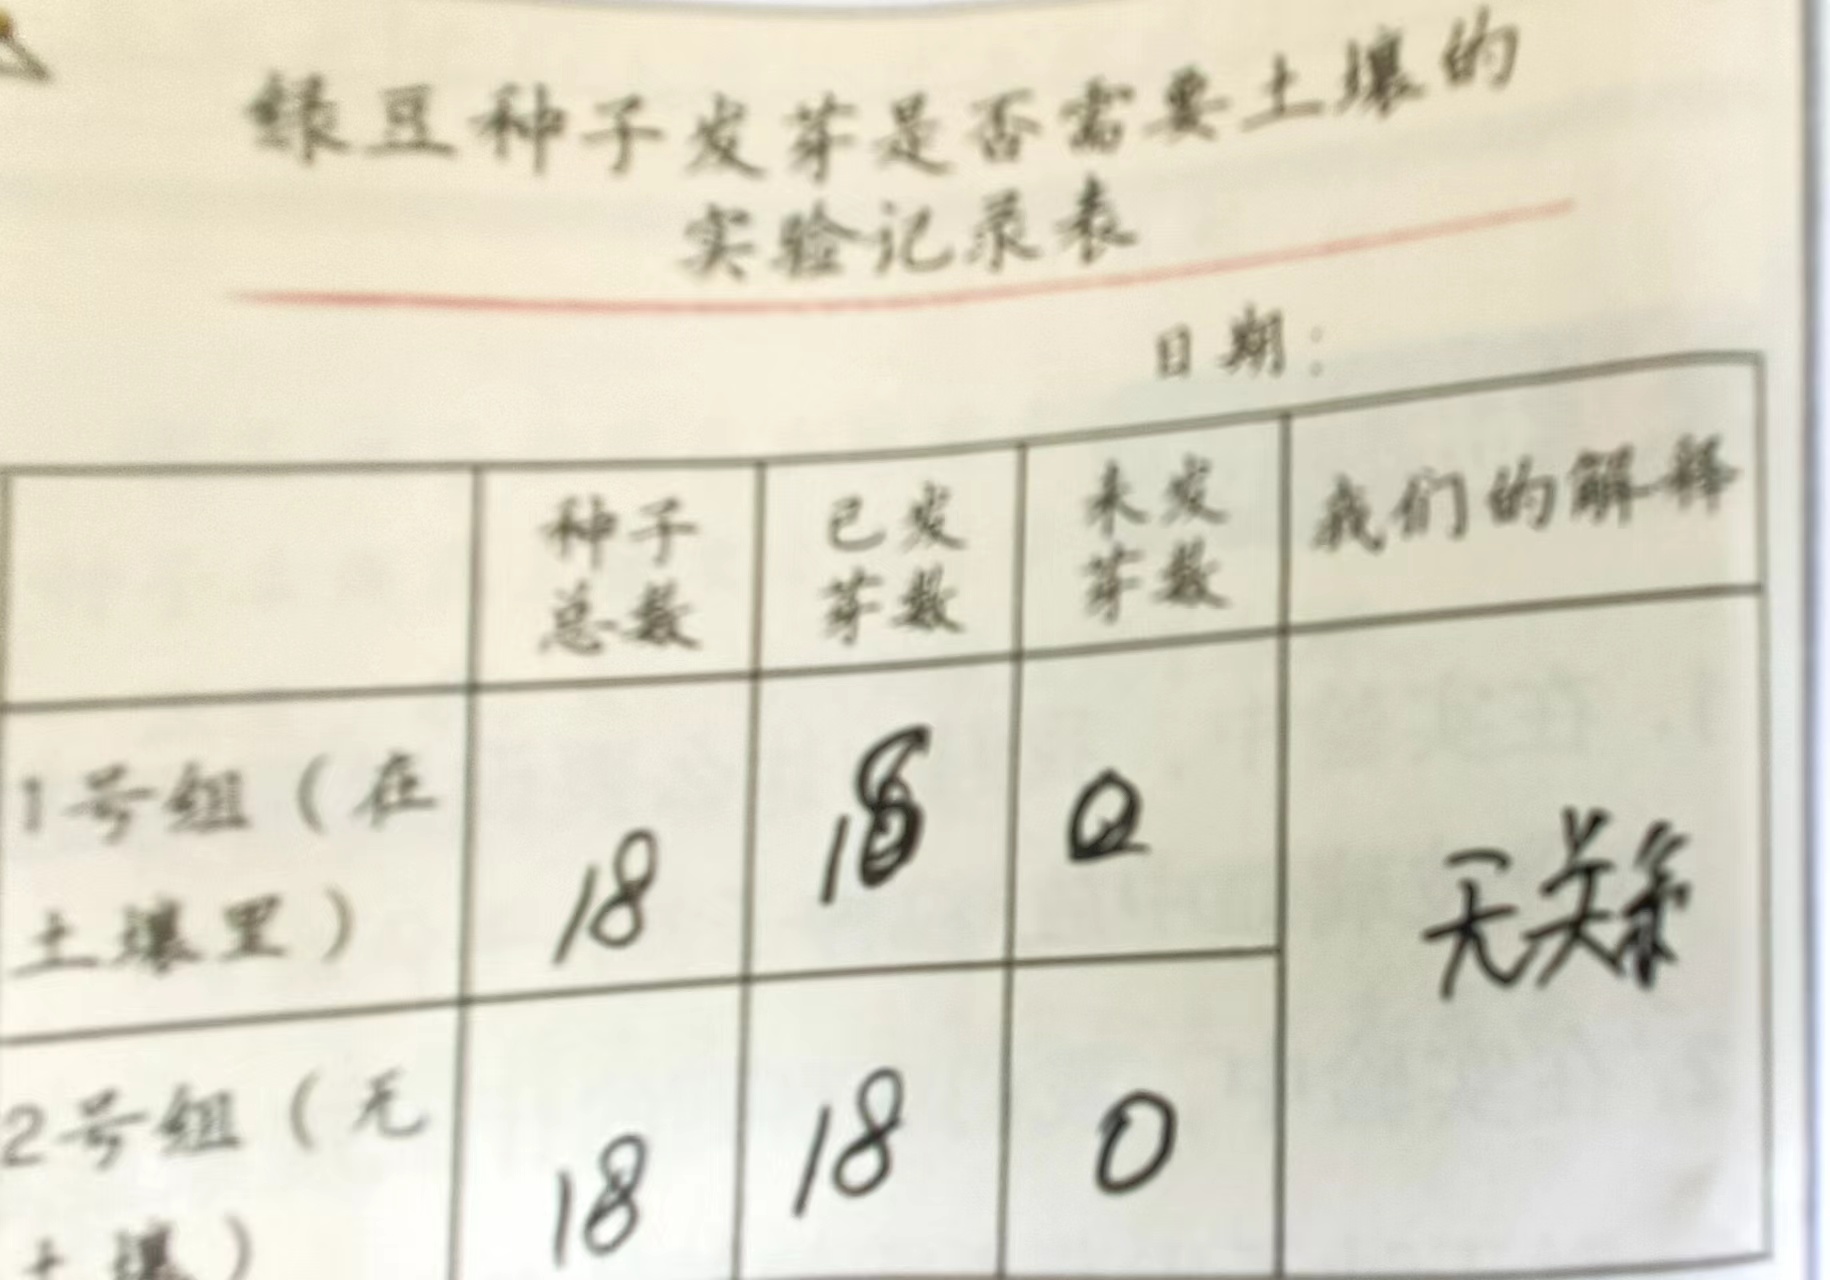 绿豆种子发芽是否需要土壤的
实验记录表
日期:
种子总数 已发芽数 未发芽数 我们的解释
1号组(在土壤里) 18 18 0 无关系
2号组(无土壤) 18 18 0